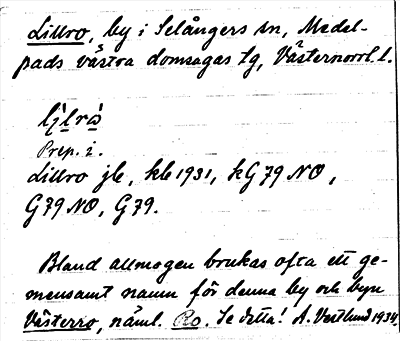 Lillro, by i Selångers sn, Medel-
pads västra domsagas tg, Västernorrl. l.
Prep. i.
Lillro jb, kb 1931, kG 79 NO,
G 79 NO, G 79.
Bland allmogen brukas ofta ett ge-
mensamt namn för denna by och byn
Västerro, näml. Ro. Se detta! A. Vestlund 1934.